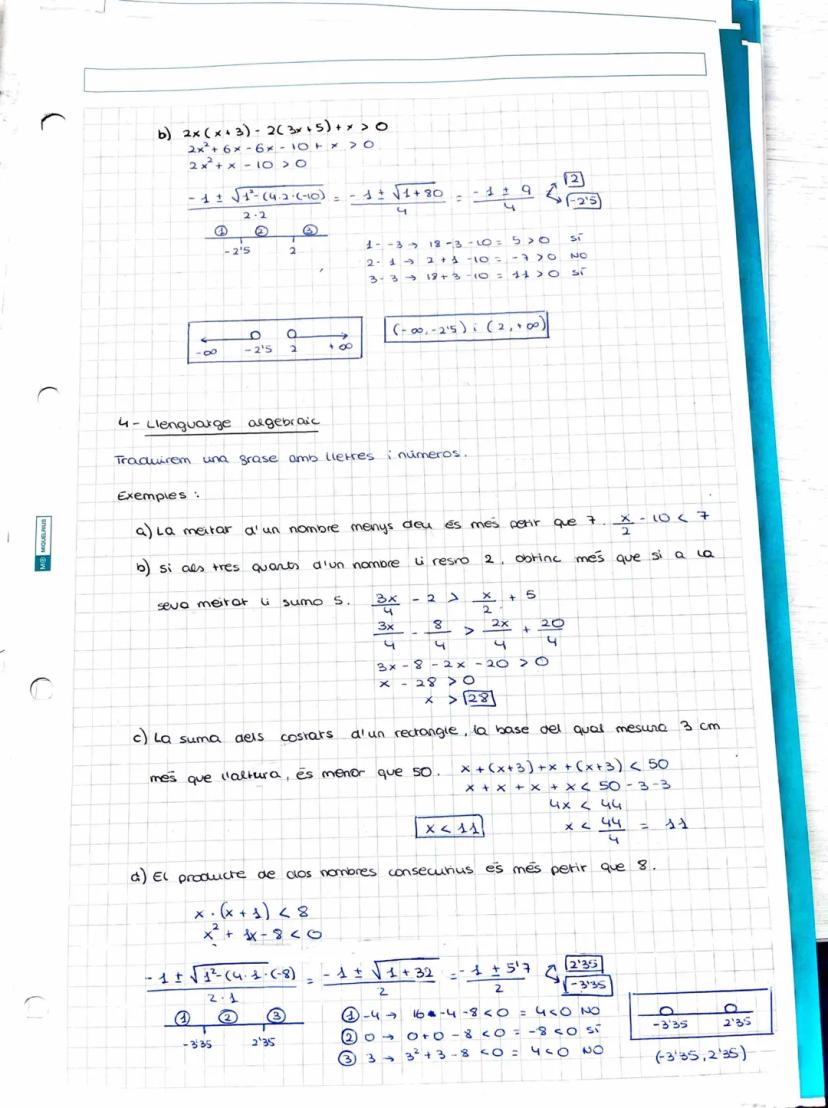 b) 2x(x+3) - 2(3x+5) + x > 0
2x² + 6x - 6x - 10 + x > 0
2x² + x - 10 > 0
-1 ± √1²-(4·2·(-10) / 2·2 = -1 ± √1+80 / 4 = -1 ± 9 / 4 2 -2'5
1 2 3
-2'5 2
1- -3 → 18-3-10 = 5 > 0 SÍ
2- 1 → 2+1-10 = -7 > 0 NO
3- 3 → 18+3-10 = 11 > 0 SÍ
-∞ -2'5 2 +∞
(-∞, -2'5) i (2, +∞)
4- Llenguatge algebraic
Traduirem una frase amb lletres i números.
Exemples:
a) La meitat d'un nombre menys deu és més petit que 7. x/2 - 10 < 7
b) Si als tres quarts d'un nombre li resto 2, obtinc més que si a la
seva meitat li sumo 5. 3x/4 - 2 > x/2 + 5
3x/4 - 8/4 > 2x/4 + 20/4
3x - 8 - 2x - 20 > 0
x - 28 > 0
x > 28
c) La suma dels costats d'un rectangle, la base del qual mesura 3 cm
més que l'altura, és menor que 50. x + (x+3) + x + (x+3) < 50
x + x + x + x < 50 - 3 - 3
4x < 44
x < 44/4 = 11
x < 11
d) El producte de dos nombres consecutius és més petit que 8.
x · (x + 1) < 8
x² + 1x - 8 < 0
-1 ± √1²-(4·1·(-8) / 2·1 = -1 ± √1+32 / 2 = -1 ± 5'7 / 2 2'35 -3'35
1 2 3
-3'35 2'35
1 -4 → 16 -4 -8 < 0 = 4 < 0 NO
2 0 → 0+0-8 < 0 = -8 < 0 SÍ
3 3 → 3²+3-8 < 0 = 4 < 0 NO
-3'35 2'35
(-3'35, 2'35)
MIQUELRIUS